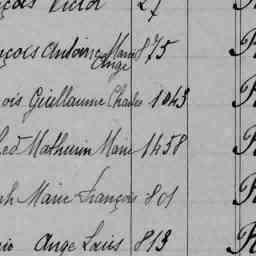 çois Victor 27
nçois Antoine Marie 875
Ange
ois Guillaume Charles 1043
red Mathurin Marie 1458
ph Marie François 801
rie Ange Louis 813